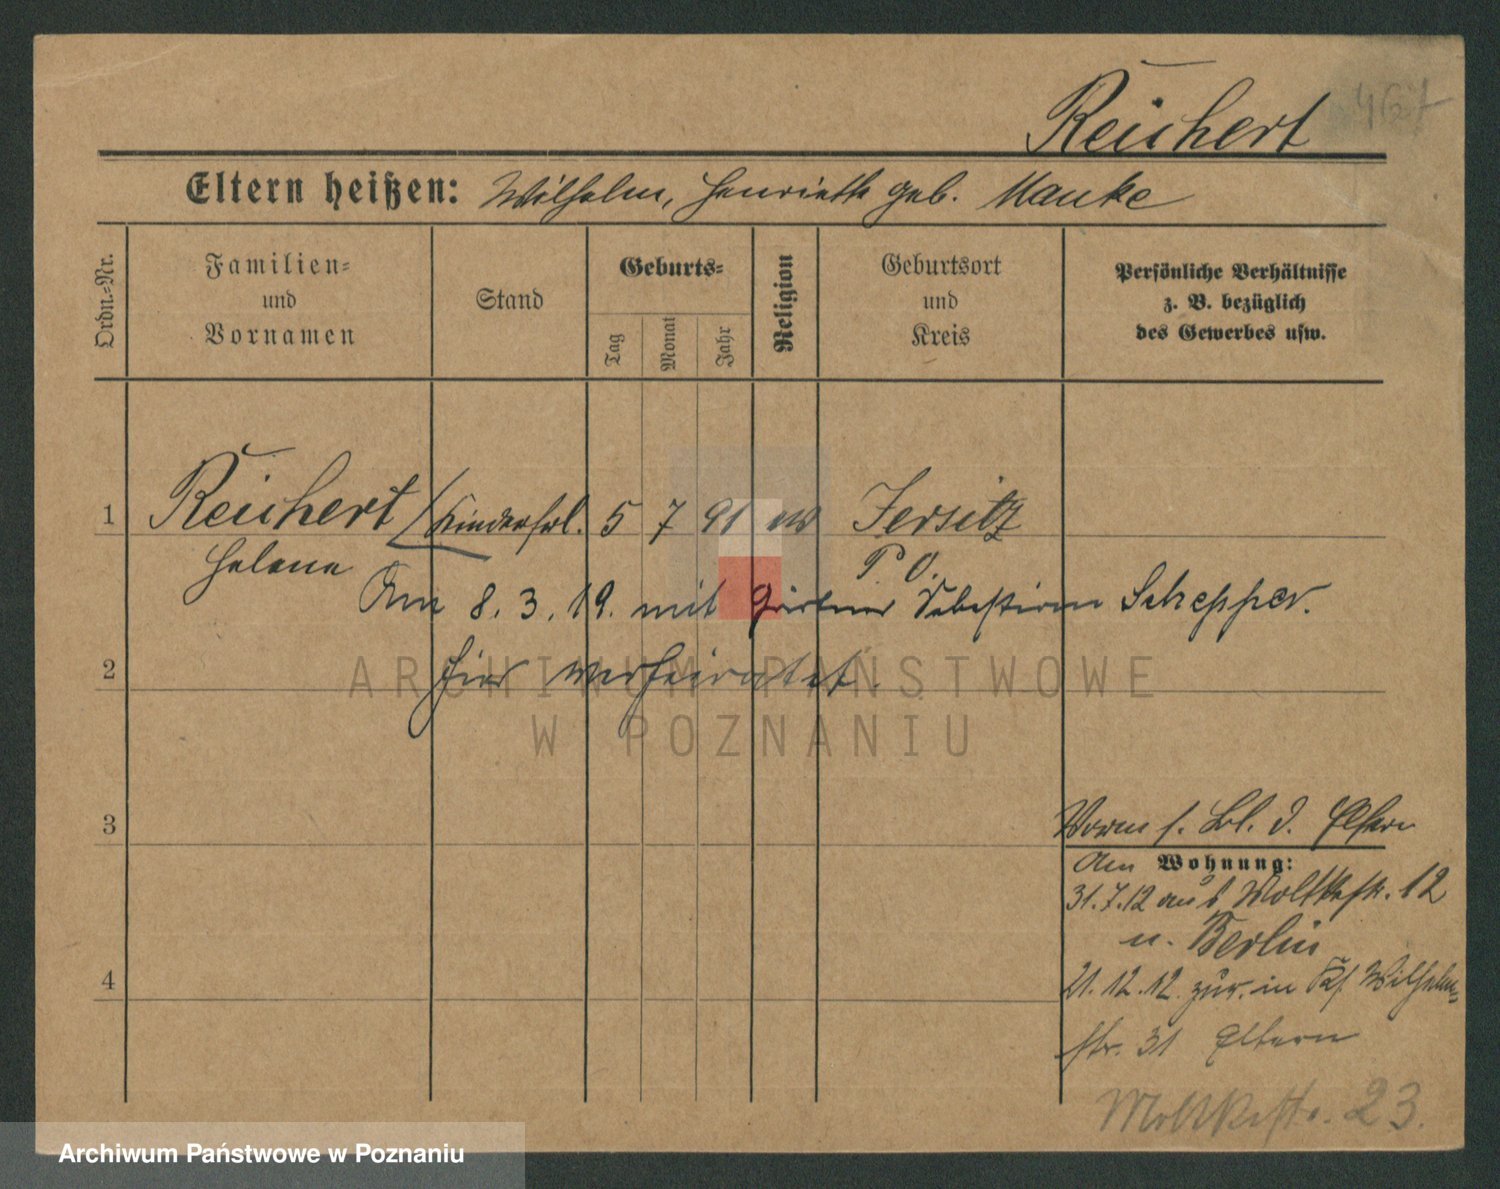 Reichert
Eltern heißen: Wilhelm, Henriette geb. Manke
Ordn.-Nr.
Familien-
und
Vornamen
Stand
Geburts-
Tag
Monat
Jahr
Religion
Geburtsort
und
Kreis
Persönliche Verhältnisse
z. B. bezüglich
des Gewerbes usw.
1 Reichert Kinderfrl. 5 7 91 Jersitz
Helene P. O.
Am 8. 3. 19. mit Gärtner Sebastian Schepper.
2 hier verheiratet.
ARCHIWUM PAŃSTWOWE
W POZNANIU
3
Vorm s. Bl. d. Eltern
Am Wohnung:
31.7.12 aus Moltkestr. 12
n. Berlin
4
21. 12. 12. zur. in Wilhelm-
str. 31 Eltern
Moltkestr. 23.
Archiwum Państwowe w Poznaniu